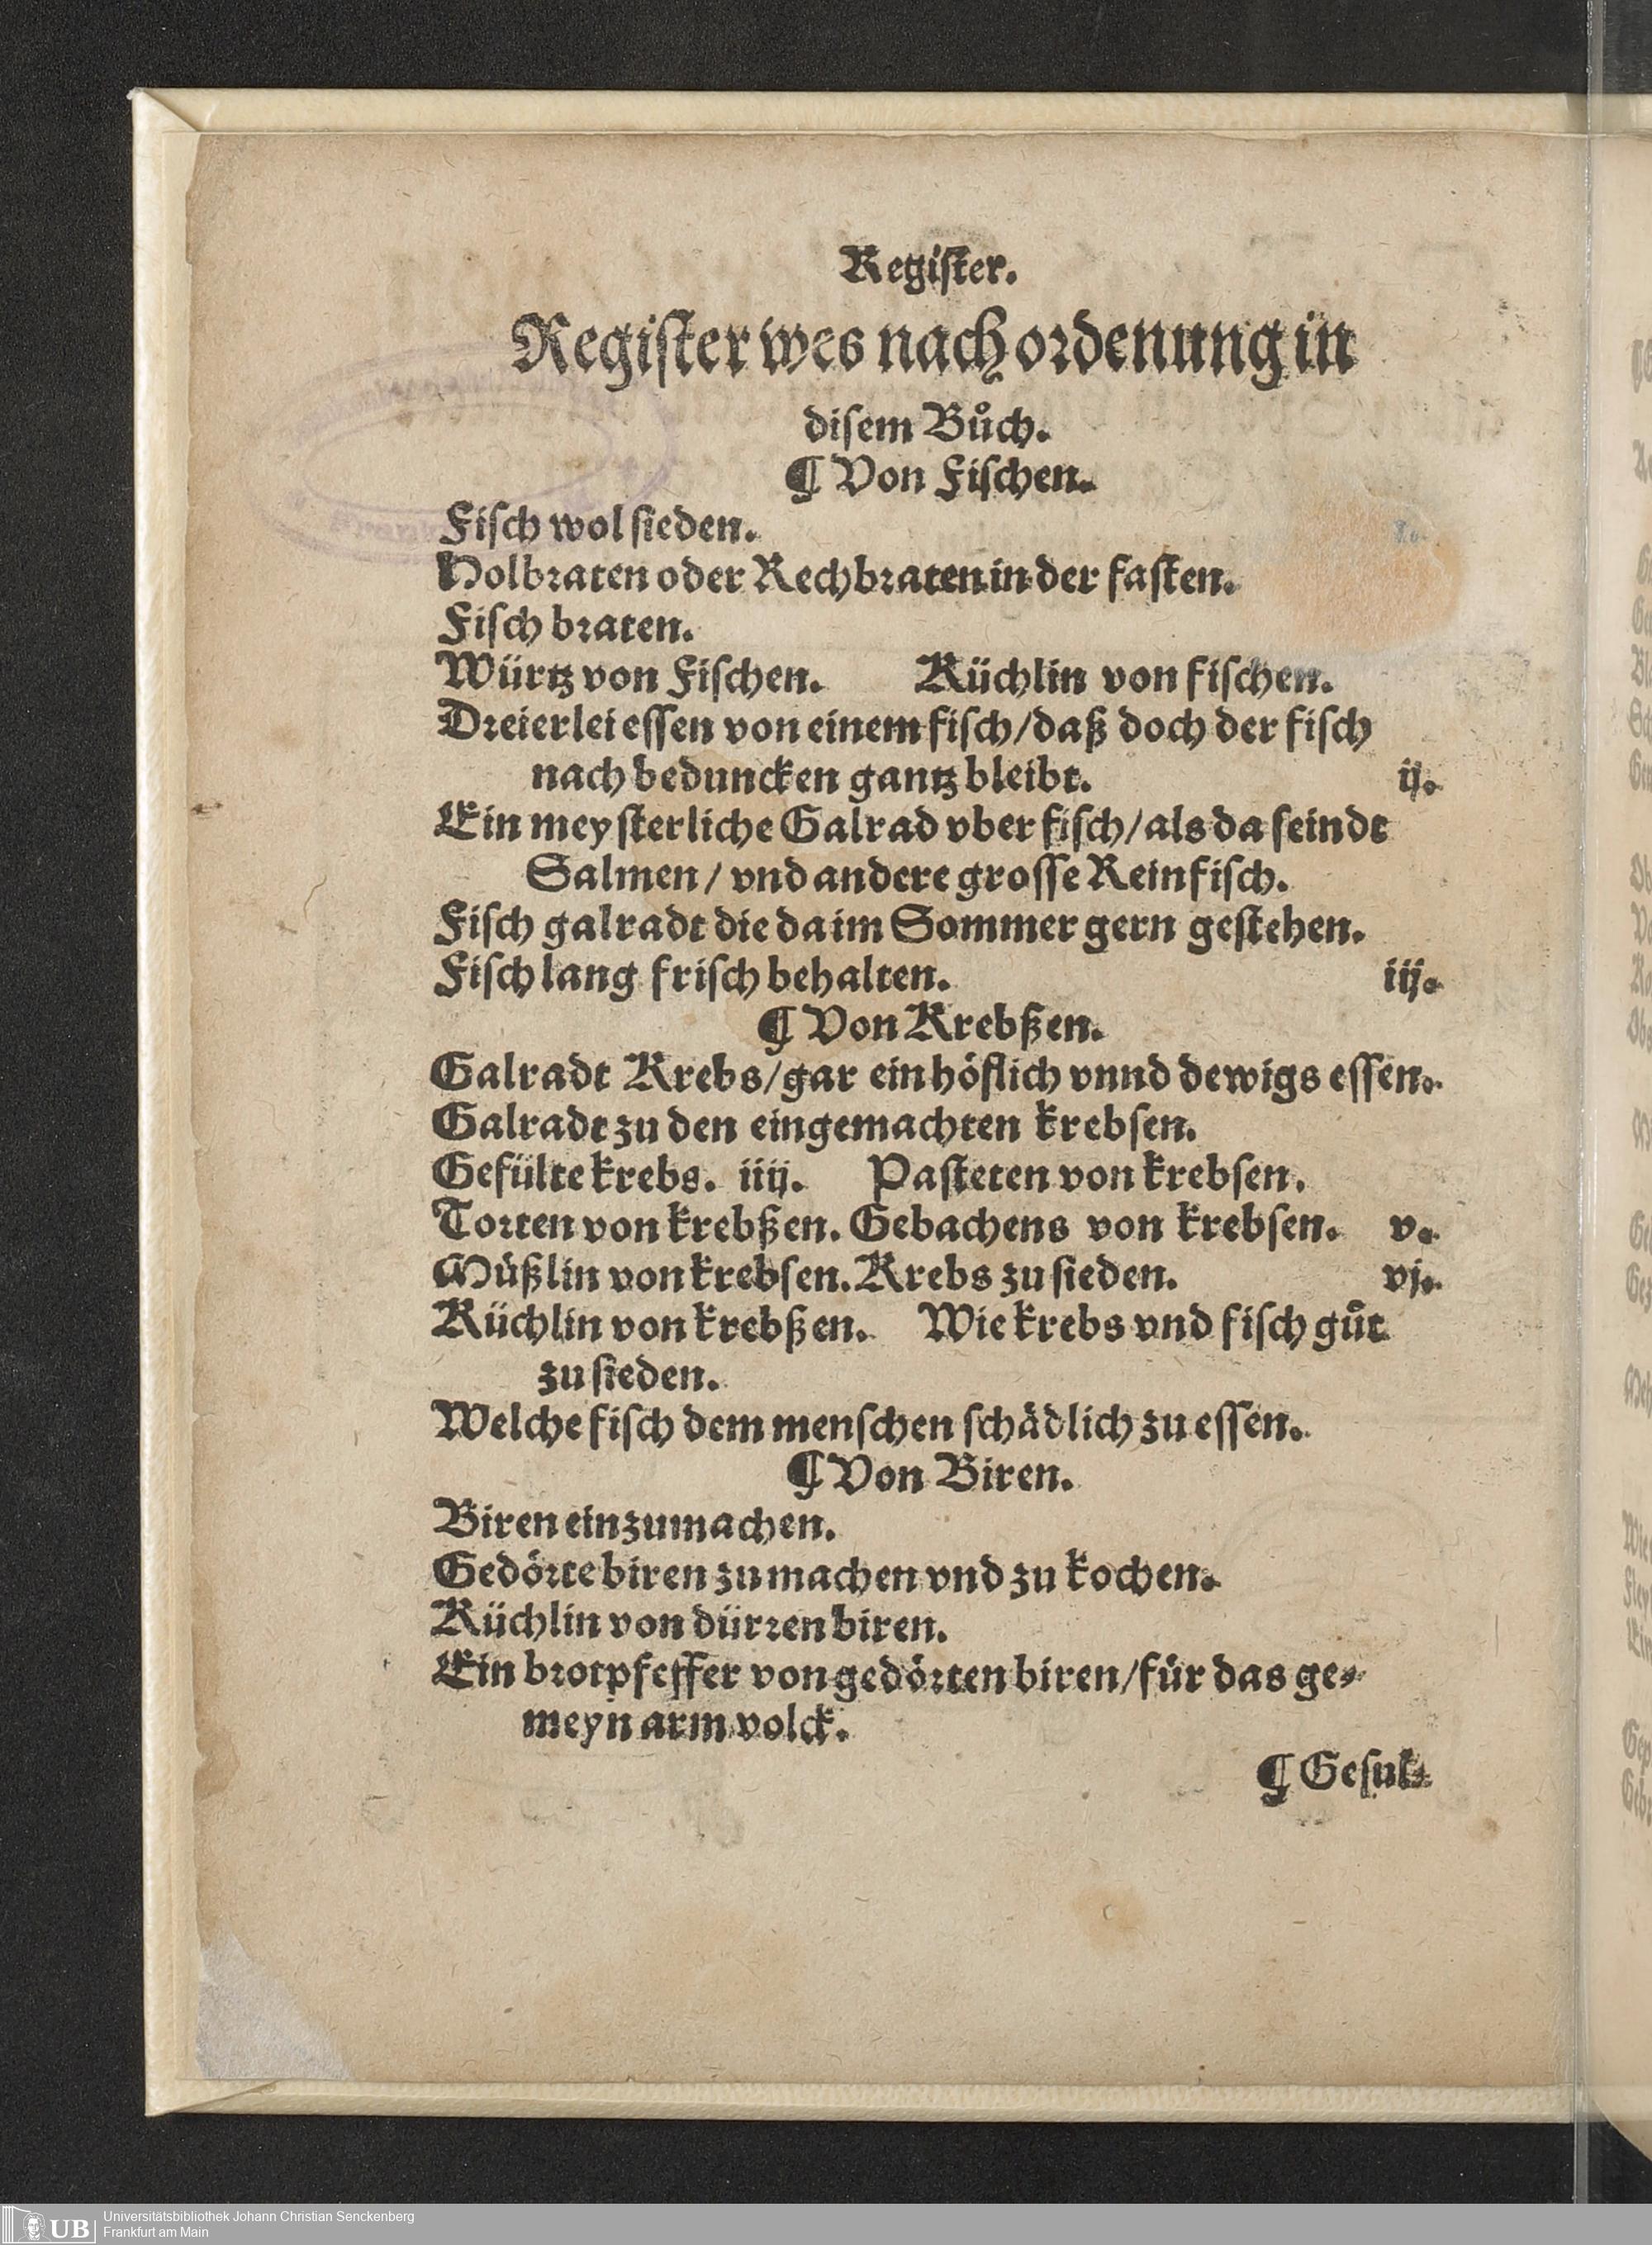 Register.
Register wes nach ordenung in
disem Bůch.
¶ Von Fischen.
Fisch wol sieden.
Holbraten oder Rechbraten in der fasten.
Fisch braten.
Würtz von Fischen. Küchlin von fischen.
Dreierlei essen von einem fisch/daß doch der fisch
nach beduncken gantz bleibt. ij.
Ein meysterliche Galrad vber fisch/als da seindt
Salmen/vnd andere grosse Reinfisch.
Fisch galradt die da im Sommer gern gestehen.
Fisch lang frisch behalten. iij.
¶ Von Krebßen.
Galradt Krebs/gar ein höflich vnnd dewigs essen.
Galradt zu den eingemachten krebsen.
Gefülte krebs. iiij. Pasteten von krebsen.
Torten von krebßen. Gebachens von krebsen. v.
Müßlin von krebsen. Krebs zu sieden. vj.
Küchlin von krebßen. Wie krebs vnd fisch gůt
zu sieden.
Welche fisch dem menschen schädlich zu essen.
¶ Von Biren.
Biren einzumachen.
Gedörte biren zu machen vnd zu kochen.
Küchlin von dürren biren.
Ein brotpfeffer von gedörten biren/für das ge⸗
meyn arm volck.
¶ Gesul⸗
UB
Universitätsbibliothek Johann Christian Senckenberg
Frankfurt am Main